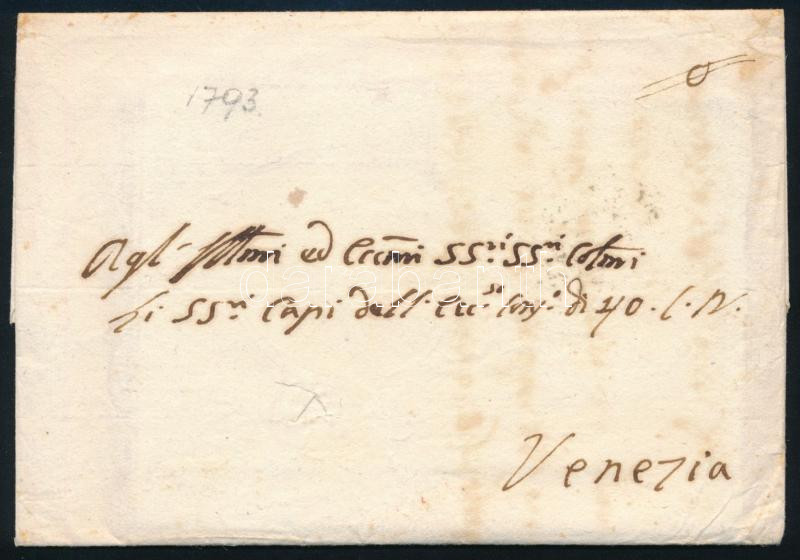 1793
Agl'Illmi ed Eccmi SS.ri SS.ri Colmi
Li SS.ri Capi dell'Ecc.so Con.o di 40. C. N.
Venezia